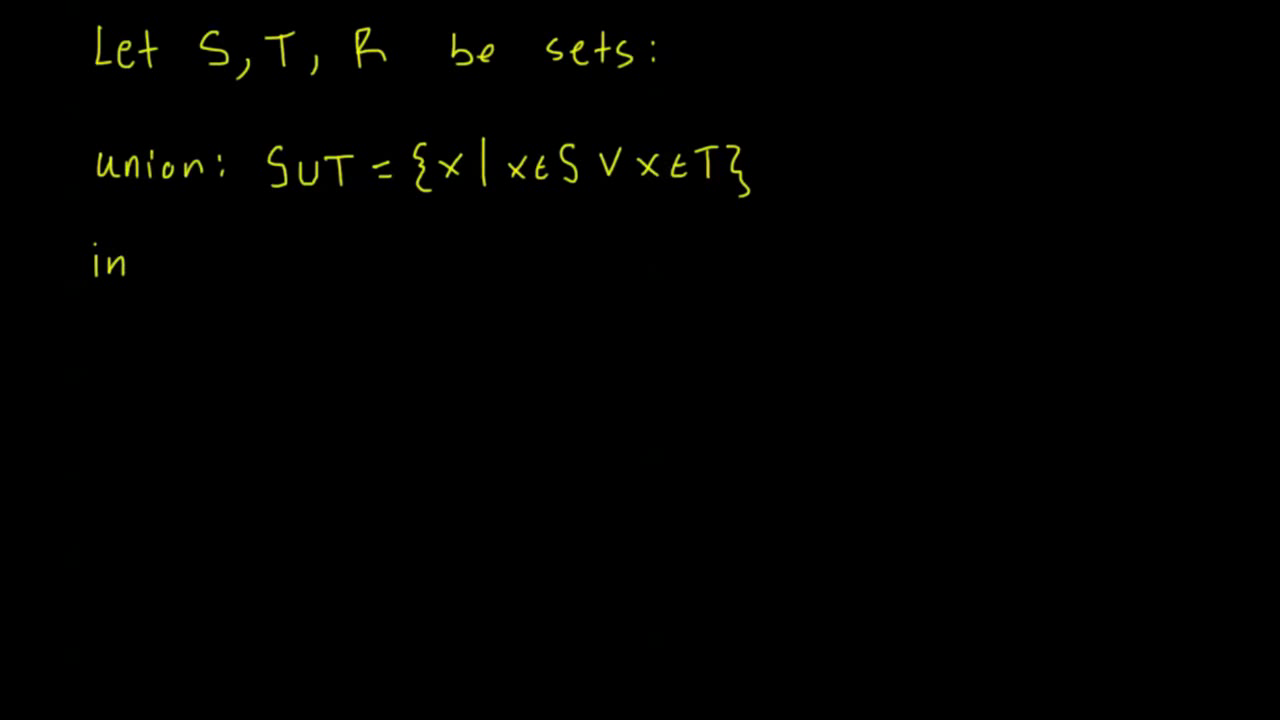 Let S, T, R be sets:
union: S∪T = {x | x∈S ∨ x∈T}
in